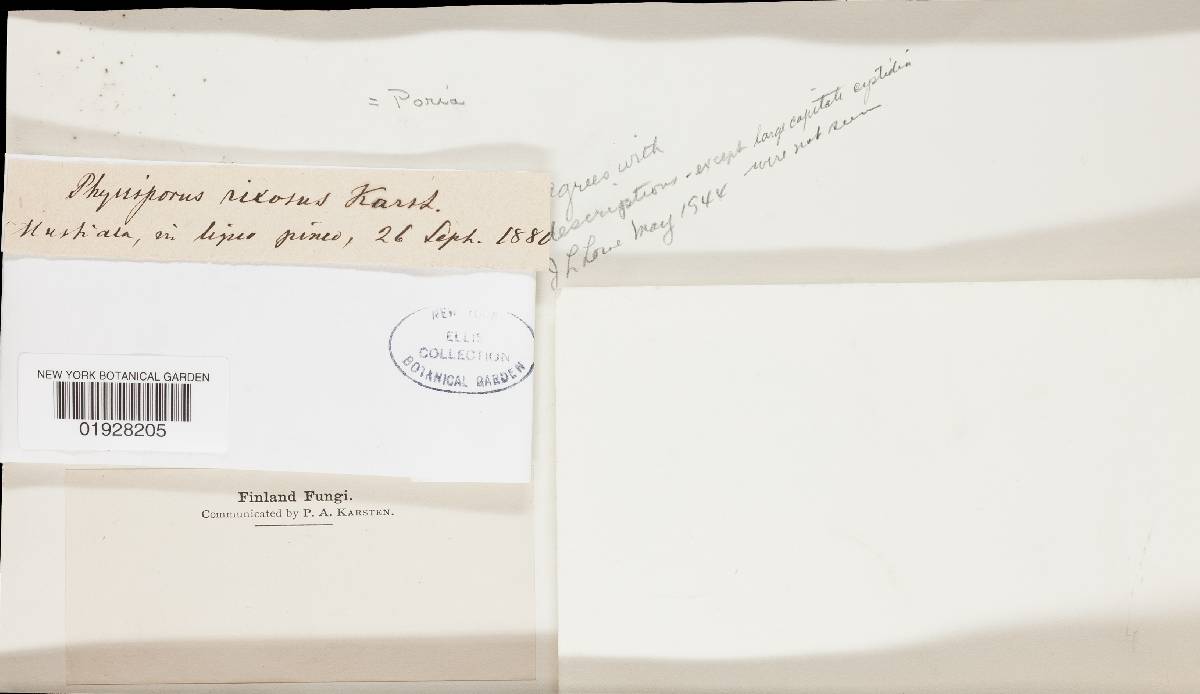 = Poria
agrees with
descriptions - except large capitate cystidia
were not seen
J L Lowe May 1944
Physisporus rixosus Karst.
Mustiala, in ligno pineo, 26 Sept. 188
NEW YORK
ELLIS
COLLECTION
BOTANICAL GARDEN
NEW YORK BOTANICAL GARDEN
01928205
Finland Fungi.
Communicated by P. A. KARSTEN.